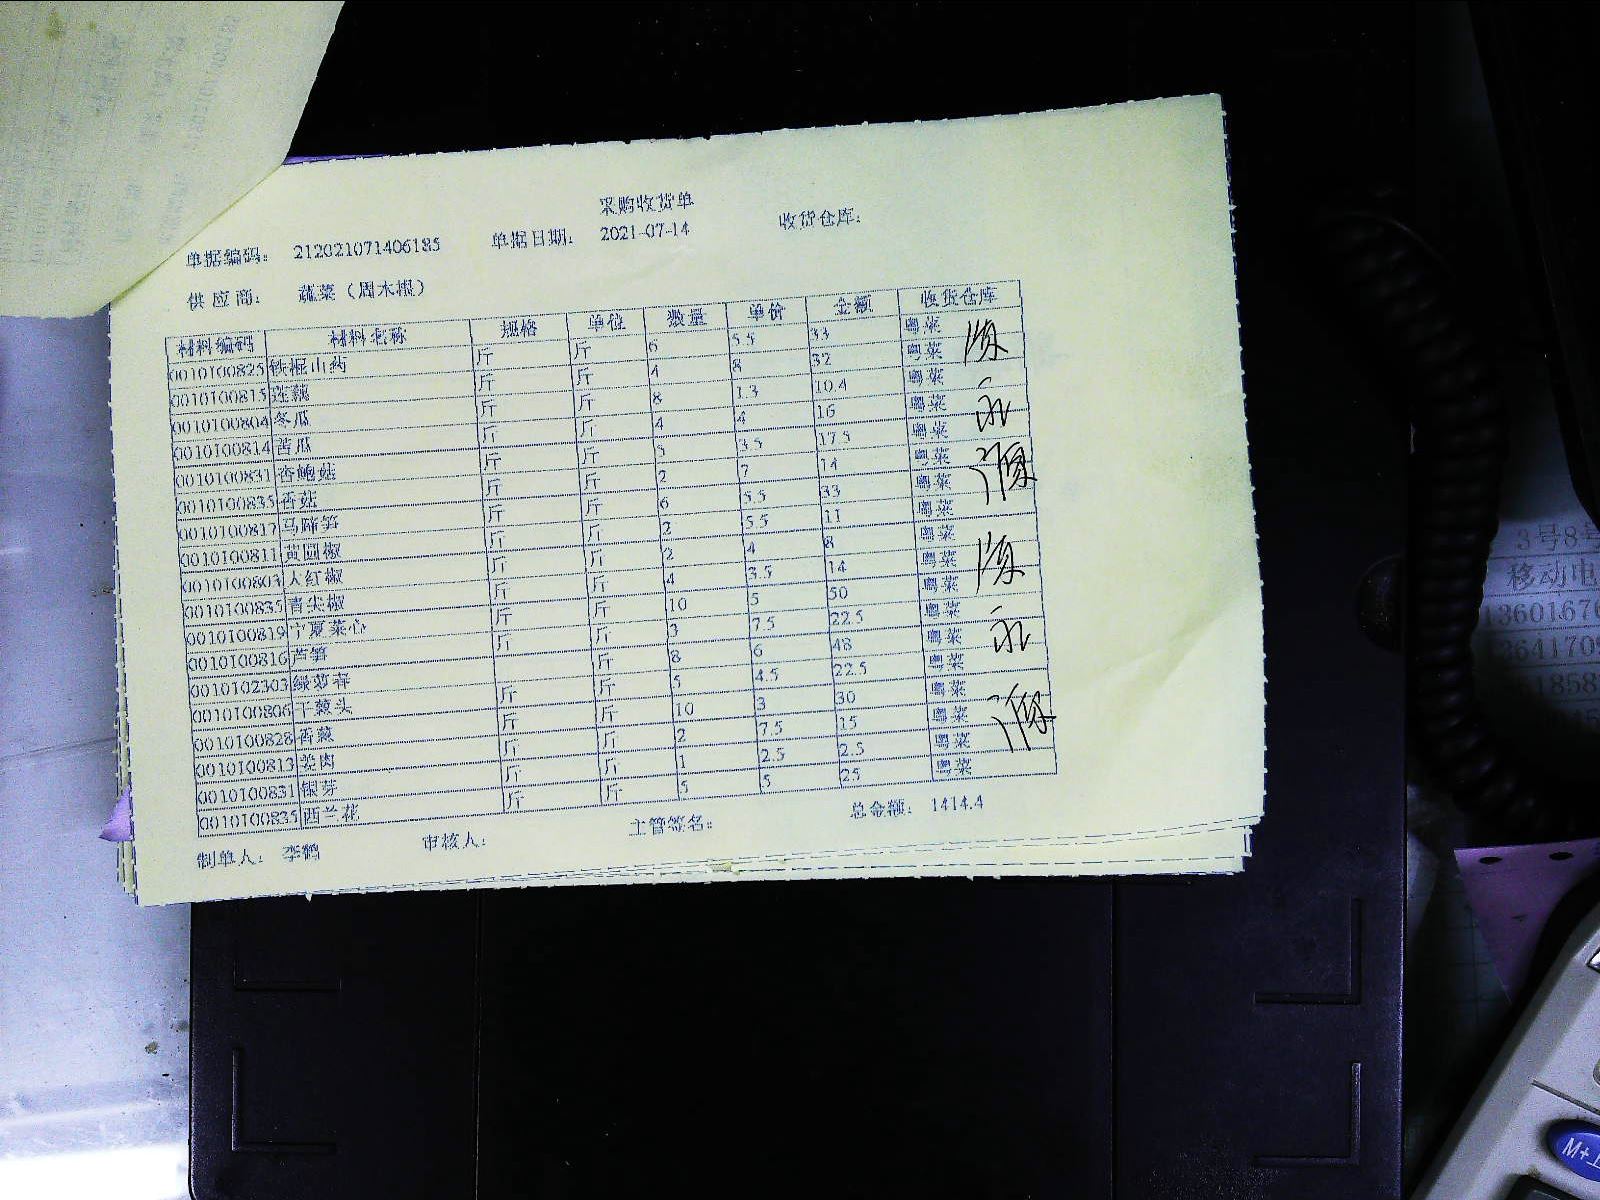 采购收货单
单据编码： 212021071406185 单据日期： 2021-07-14 收货仓库：
供应商： 蔬菜（周木根）
材料编码 材料名称 规格 单位 数量 单价 金额 收货仓库
0010100825 铁棍山药 斤 斤 6 5.5 33 粤菜
0010100815 莲藕 斤 斤 4 8 32 粤菜
0010100804 冬瓜 斤 斤 8 1.3 10.4 粤菜
0010100814 苦瓜 斤 斤 4 4 16 粤菜
0010100831 杏鲍菇 斤 斤 5 3.5 17.5 粤菜
0010100835 香菇 斤 斤 2 7 14 粤菜
0010100817 马蹄笋 斤 斤 6 5.5 33 粤菜
0010100811 黄圆椒 斤 斤 2 5.5 11 粤菜
0010100803 大红椒 斤 斤 2 4 8 粤菜
0010100835 青尖椒 斤 斤 4 3.5 14 粤菜
0010100819 宁夏菜心 斤 斤 10 5 50 粤菜
0010100816 芦笋 斤 斤 3 7.5 22.5 粤菜
0010102303 绿萝蓉 斤 8 6 48 粤菜
0010100806 干葱头 斤 斤 5 4.5 22.5 粤菜
0010100828 香葱 斤 斤 10 3 30 粤菜
0010100813 姜肉 斤 斤 2 7.5 15 粤菜
0010100831 银芽 斤 斤 1 2.5 2.5 粤菜
0010100835 西兰花 斤 斤 5 5 25 粤菜
制单人： 李鹤 审核人： 主管签名： 总金额： 1414.4
3号8号
移动电
1360167
364170
M+